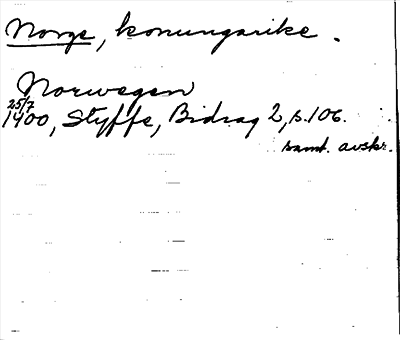 Norge, konungarike.
Norwegen
25/7
1400, Styffe, Bidrag 2, s. 106.
samt. avskr.